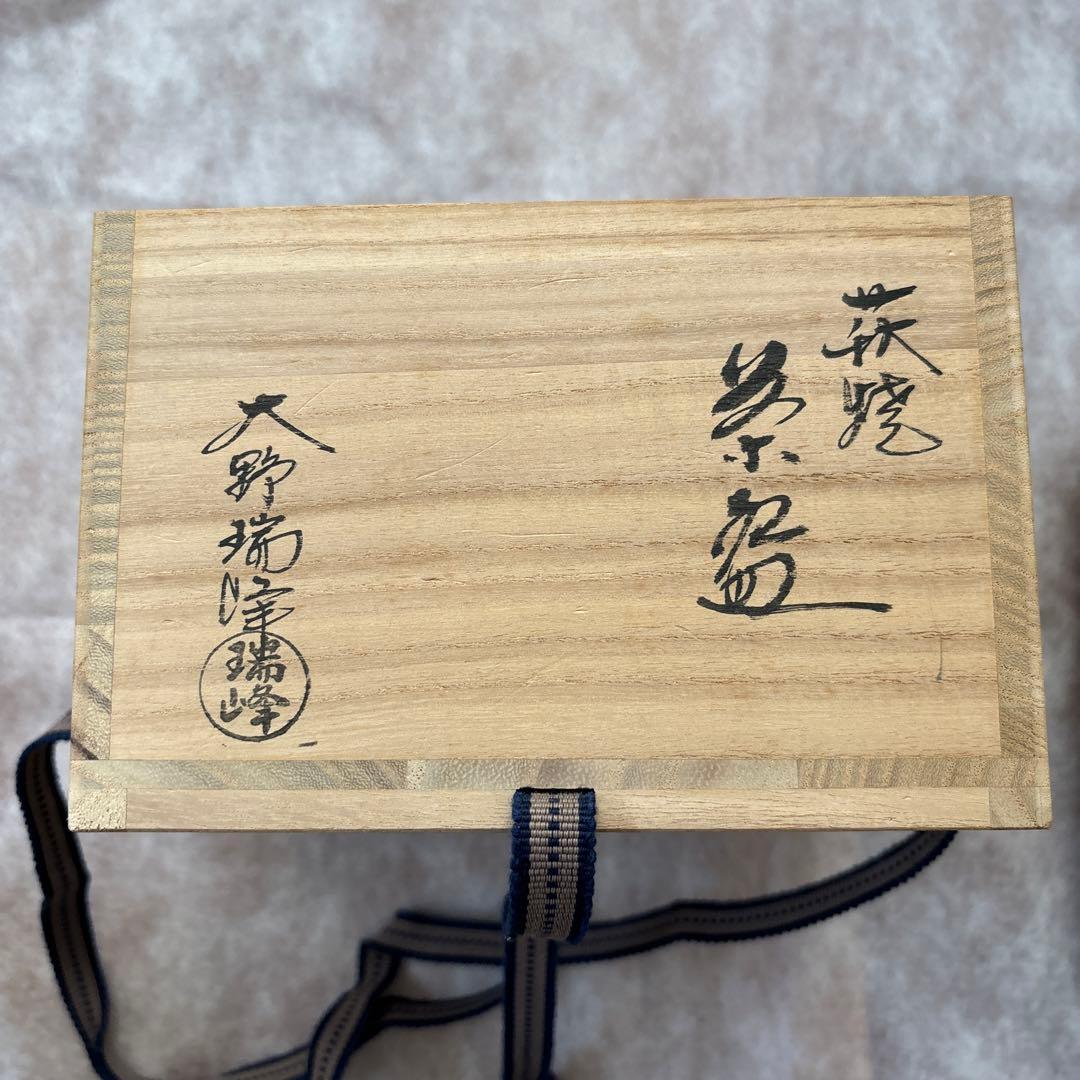 萩焼
茶盌
大野瑞峰
瑞峰